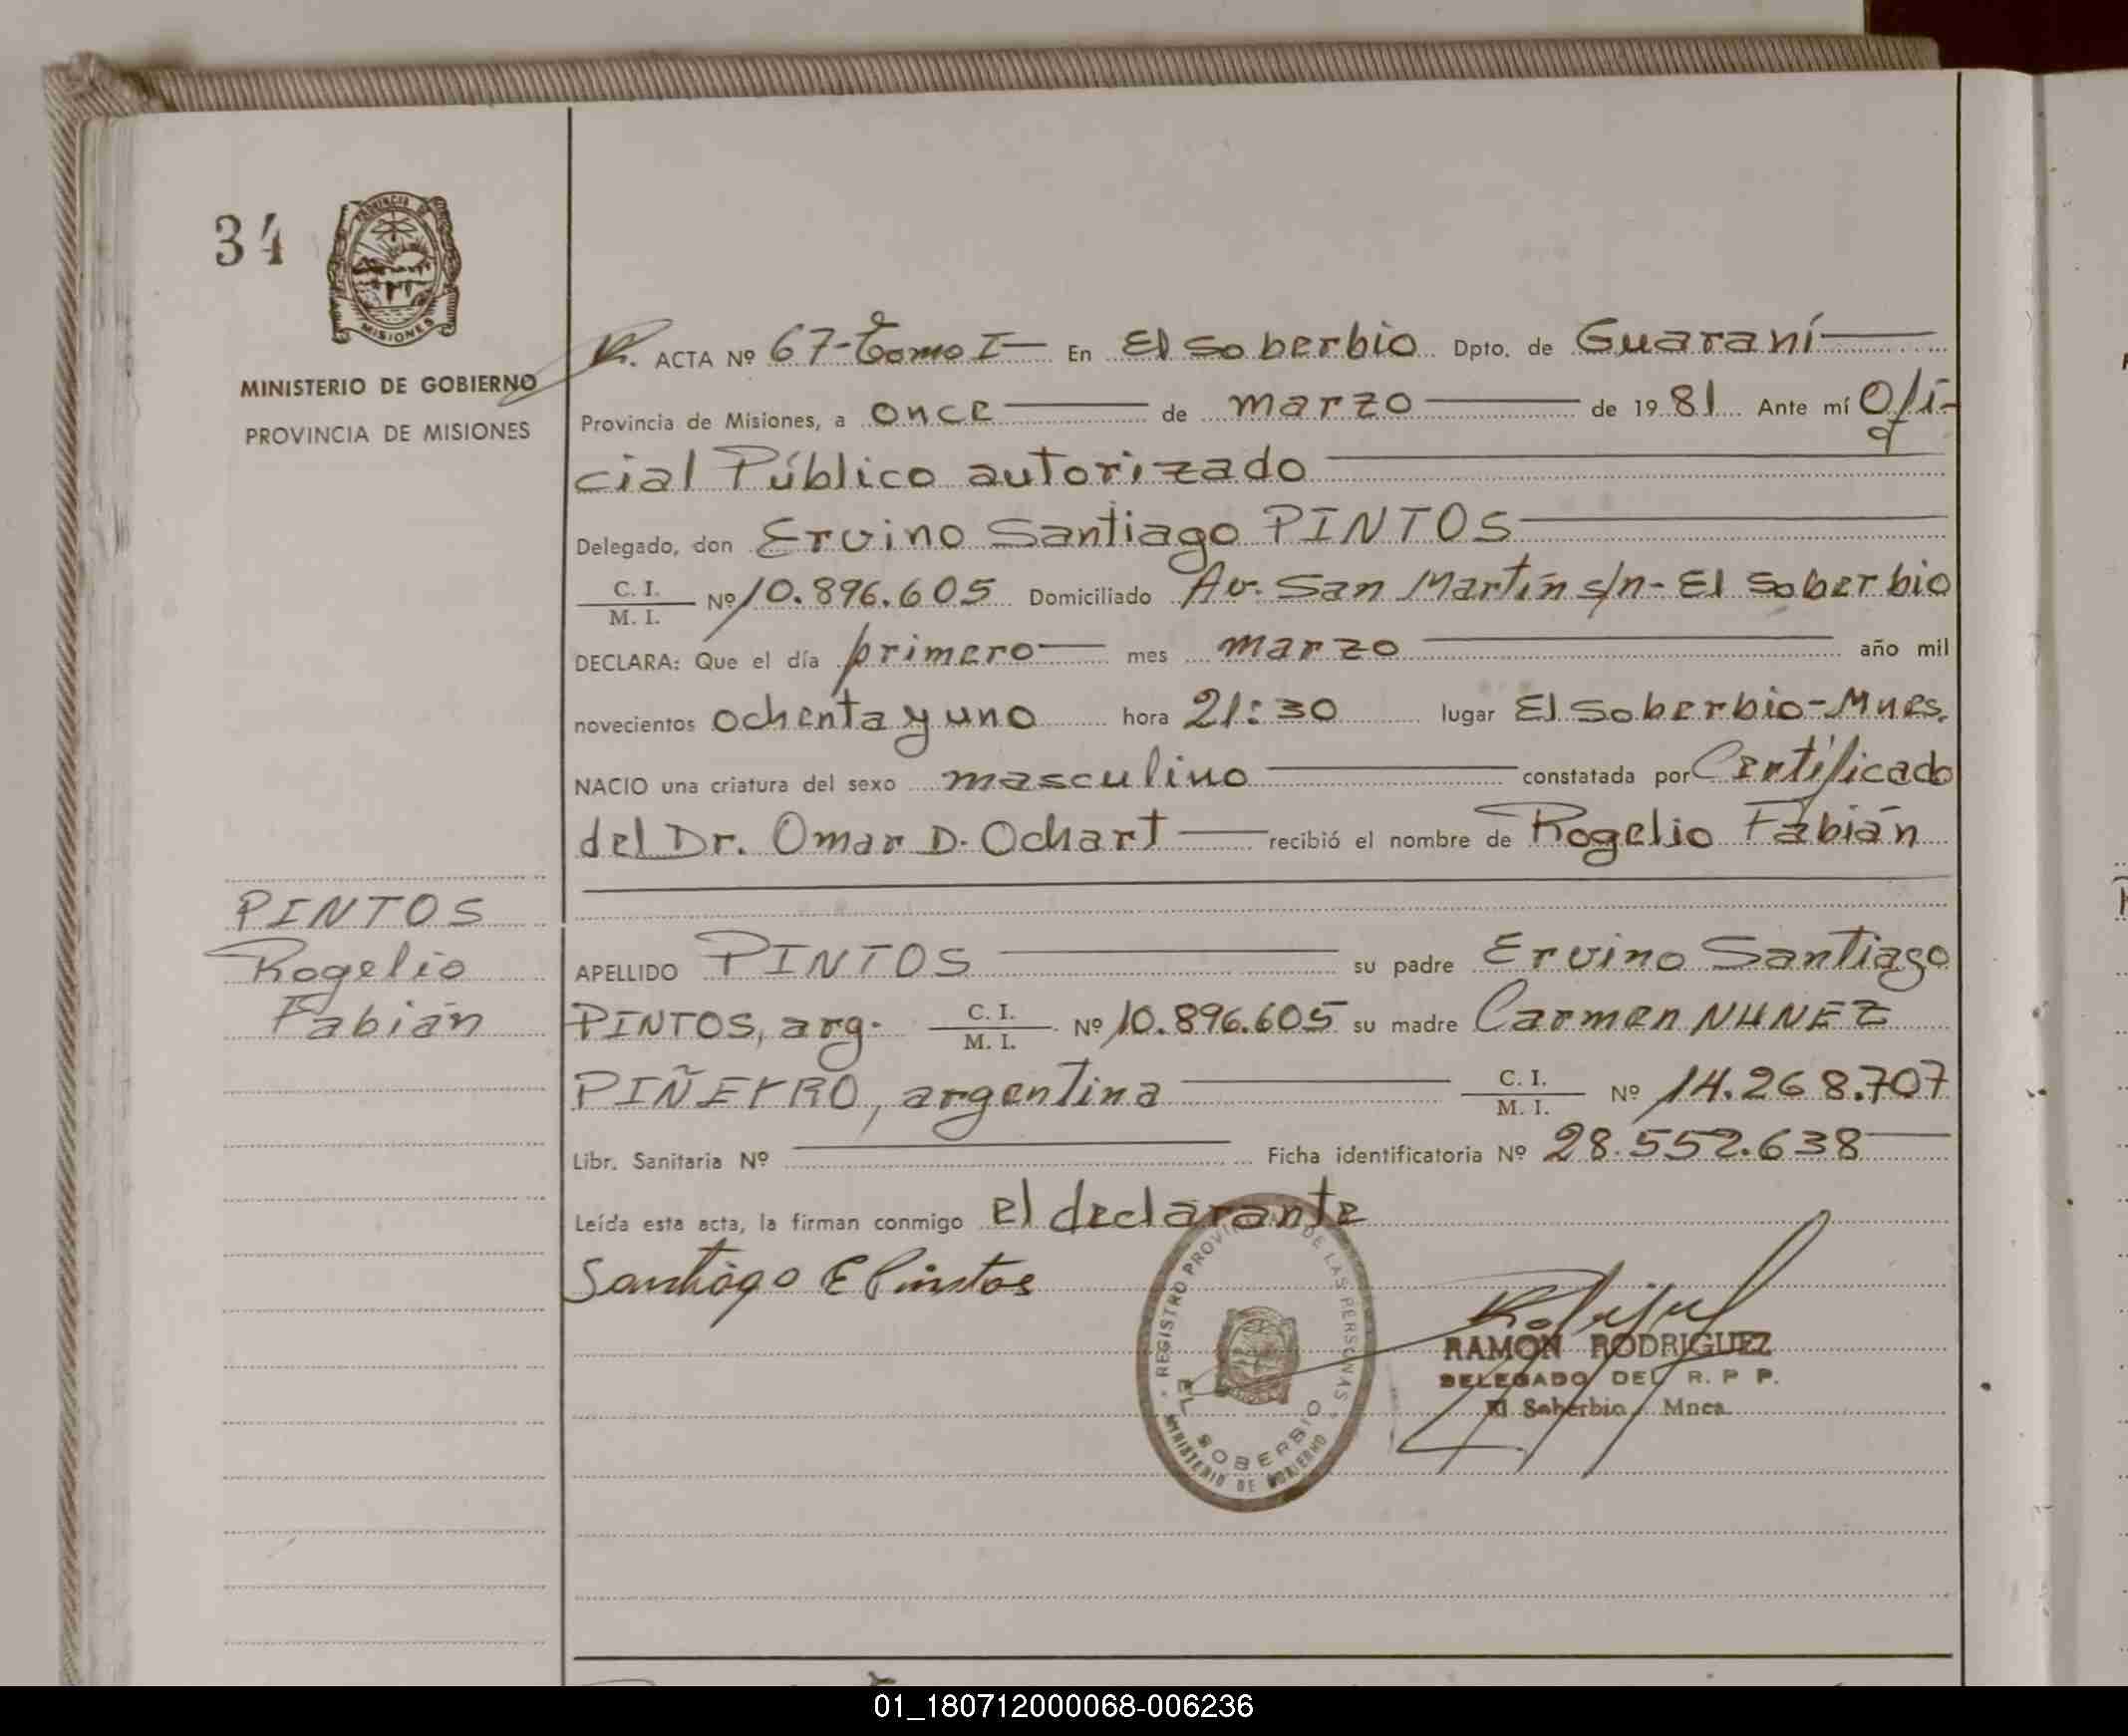 34
PROVINCIA DE
MISIONES
MINISTERIO DE GOBIERNO
PROVINCIA DE MISIONES
ACTA Nº 67-Tomo I- En El Soberbio Dpto. de Guaraní
Provincia de Misiones, a once de marzo de 1981 Ante mí Ofi-
cial Público autorizado
Delegado, don Ervino Santiago PINTOS
C. I.
M. I. Nº 10.896.605 Domiciliado Av. San Martín s/n- El Soberbio
DECLARA: Que el día primero mes marzo año mil
novecientos ochenta y uno hora 21:30 lugar El Soberbio-Mnes.
NACIO una criatura del sexo masculino constatada por Certificado
del Dr. Omar D. Ochart recibió el nombre de Rogelio Fabián
PINTOS
Rogelio
Fabián
APELLIDO PINTOS su padre Ervino Santiago
PINTOS, arg. C. I. M. I. Nº 10.896.605 su madre Carmen NUNEZ
PIÑEYRO, argentina C. I. M. I. Nº 14.268.707
Libr. Sanitaria Nº Ficha identificatoria Nº 28.552.638
Leída esta acta, la firman conmigo el declarante
Santiago E Pintos
REGISTRO PROVINCIAL DE LAS PERSONAS
EL SOBERBIO
MINISTERIO DE GOBIERNO
RAMON RODRIGUEZ
DELEGADO DEL R. P P.
El Soberbio - Mnes.
01_180712000068-006236